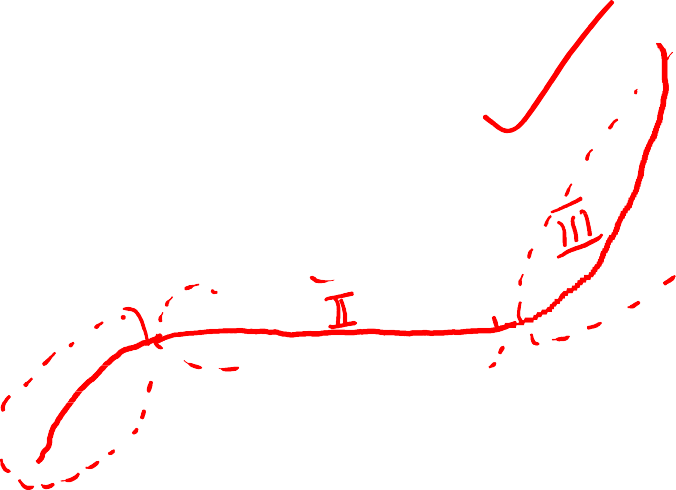 III
II